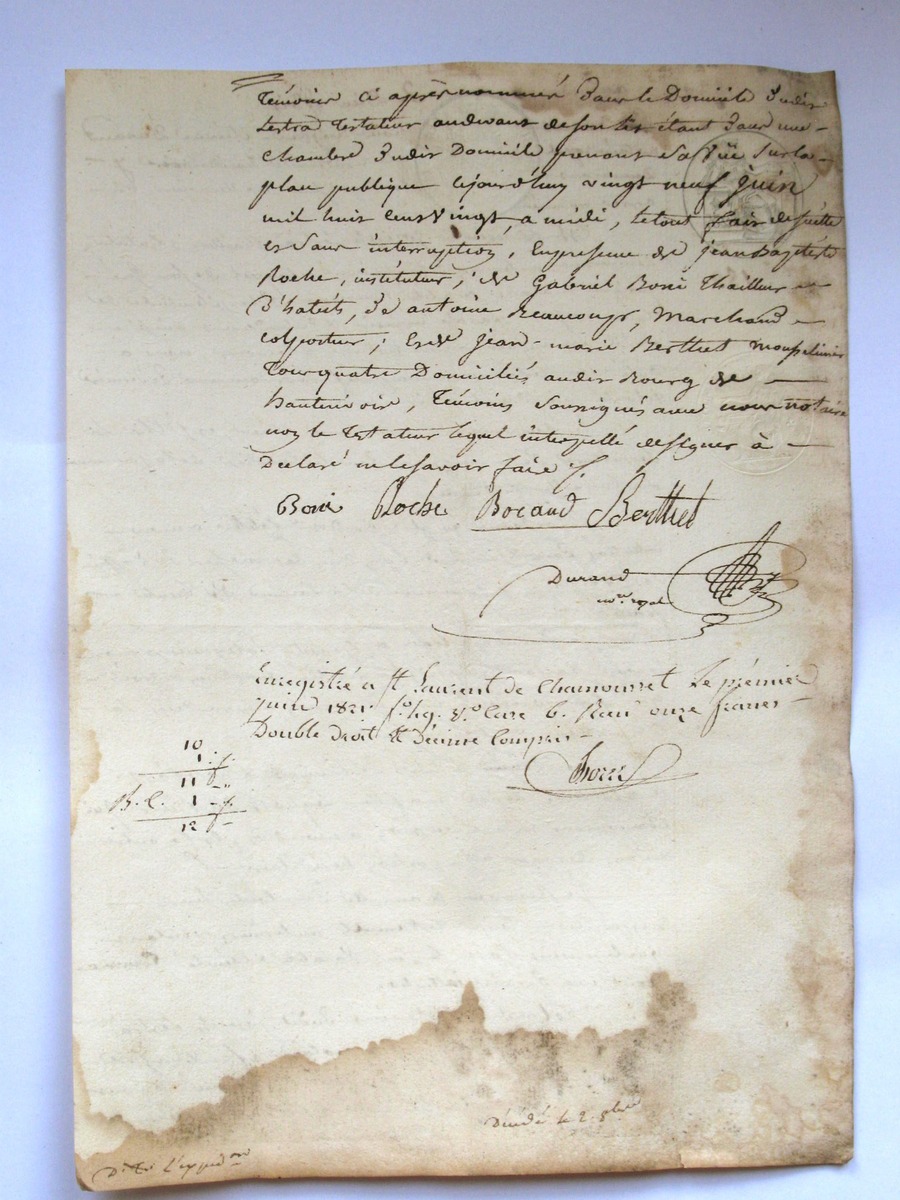 témoins ci après nommés dans le Domicile dudit
testateur audevant de son lit étant dans une
chambre dudit Domicile prenant sa vüe sur la
place publique cejourd'huy vingt neuf juin
mil huit cent vingt, à midi, le tout fait de suitte
et sans interruption, en presence de jean Baptiste
Roche, instituteur; de Gabriel Boni thailleur
d'habits, de antoine Marchand
colporteur; et de jean-marie Berthet
tous quatre Domiciliés audit Bourg de
hauterivoir, témoins soussignés avec nous notaire
non le testateur lequel interpellé de signer à
Declaré ne le savoir faire /.
Boni Roche Bocand Berthet
Durand
nore royal
Enregistré a St Laurent de Chamousset le prémier
juin 1821 fo vo Case 6. onze francs
Double droit et Décime Compris
10
1
11
B. C. 1
12
Décédé le 2. 8bre